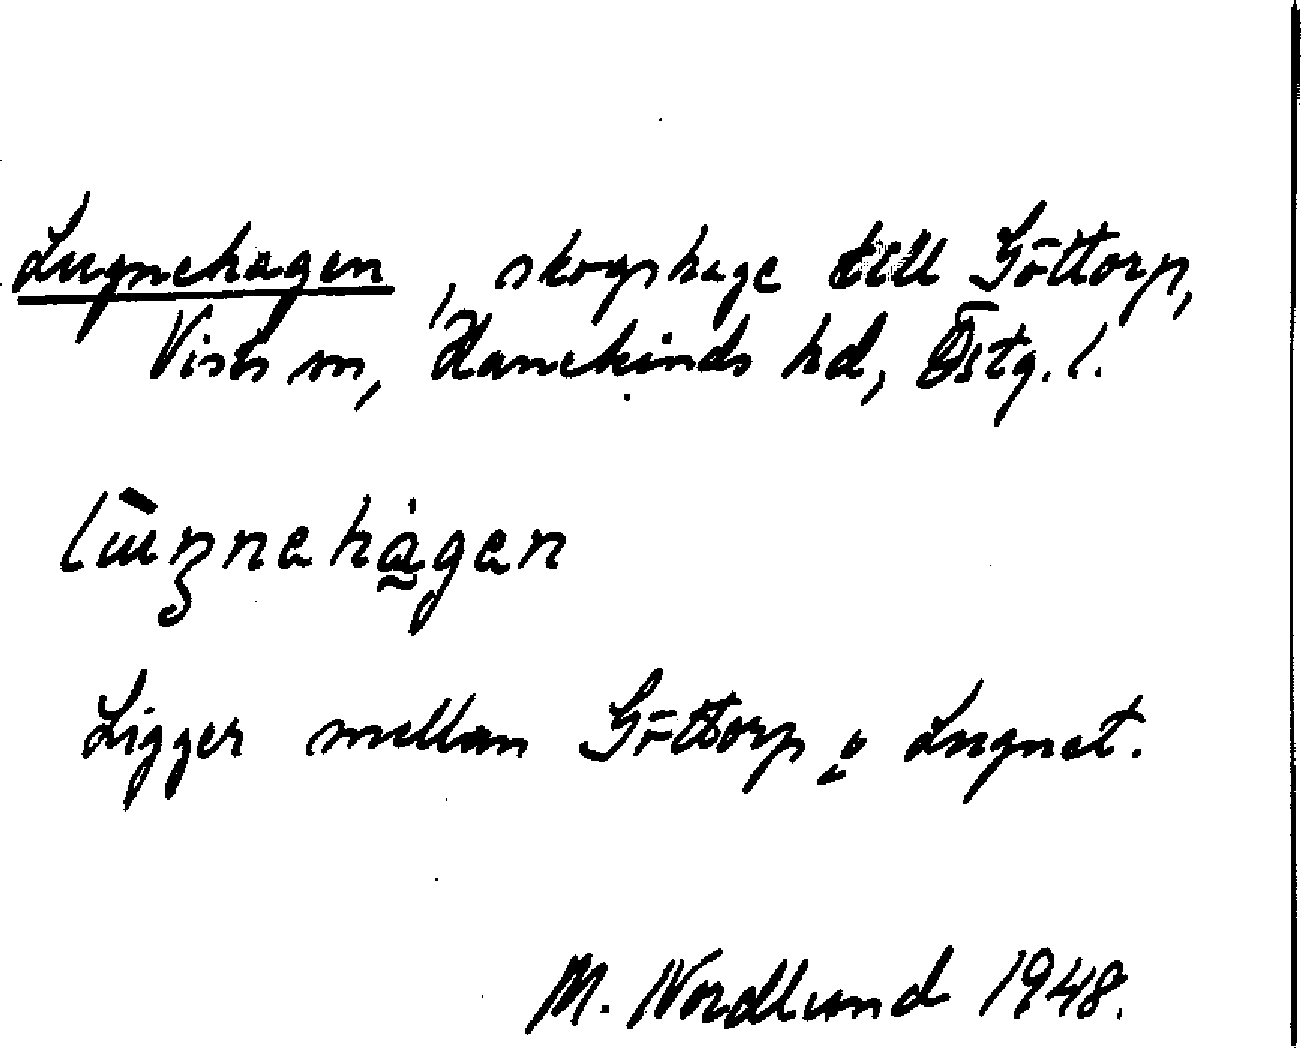 Lugnehagen, skogshage till Göttorp,
Vists sn, Hanekinds hd, Östg. l.
Ligger mellan Göttorp o Lugnet.
M. Nordlund 1948.